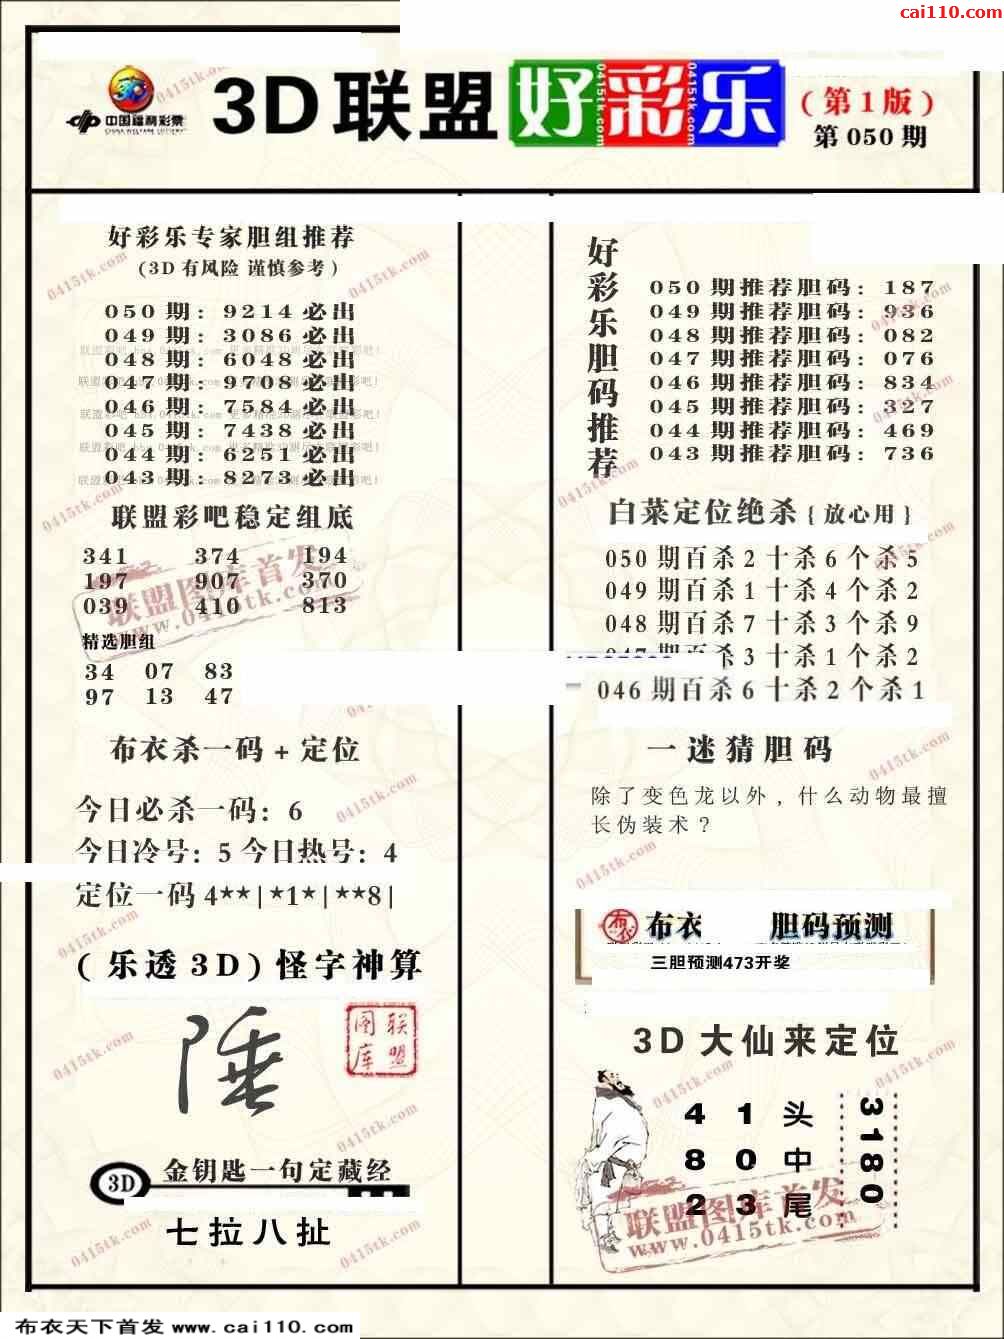 cai110.com
中国福利彩票
CHINA WELFARE LOTTERY
3D联盟好彩乐
(第1版)
第050期
好彩乐专家胆组推荐
(3D有风险 谨慎参考)
050期: 9214必出
049期: 3086必出
048期: 6048必出
047期: 9708必出
046期: 7584必出
045期: 7438必出
044期: 6251必出
043期: 8273必出
联盟彩吧稳定组底
341 374 194
197 907 370
039 410 813
精选胆组
34 07 83
97 13 47
布衣杀一码+定位
今日必杀一码: 6
今日冷号: 5 今日热号: 4
定位一码4**|*1*|**8|
(乐透3D)怪字神算
陲
联盟图库
3D 金钥匙一句定藏经
七拉八扯
好彩乐胆码推荐
050期推荐胆码: 187
049期推荐胆码: 936
048期推荐胆码: 082
047期推荐胆码: 076
046期推荐胆码: 834
045期推荐胆码: 327
044期推荐胆码: 469
043期推荐胆码: 736
白菜定位绝杀{放心用}
050期百杀2十杀6个杀5
049期百杀1十杀4个杀2
048期百杀7十杀3个杀9
047期百杀3十杀1个杀2
046期百杀6十杀2个杀1
一迷猜胆码
除了变色龙以外，什么动物最擅
长伪装术？
布衣 胆码预测
三胆预测473开奖
3D大仙来定位
4 1 头
8 0 中
2 3 尾
3180
联盟图库首发
www.0415tk.com
0415tk.com
布衣天下首发 www.cai110.com